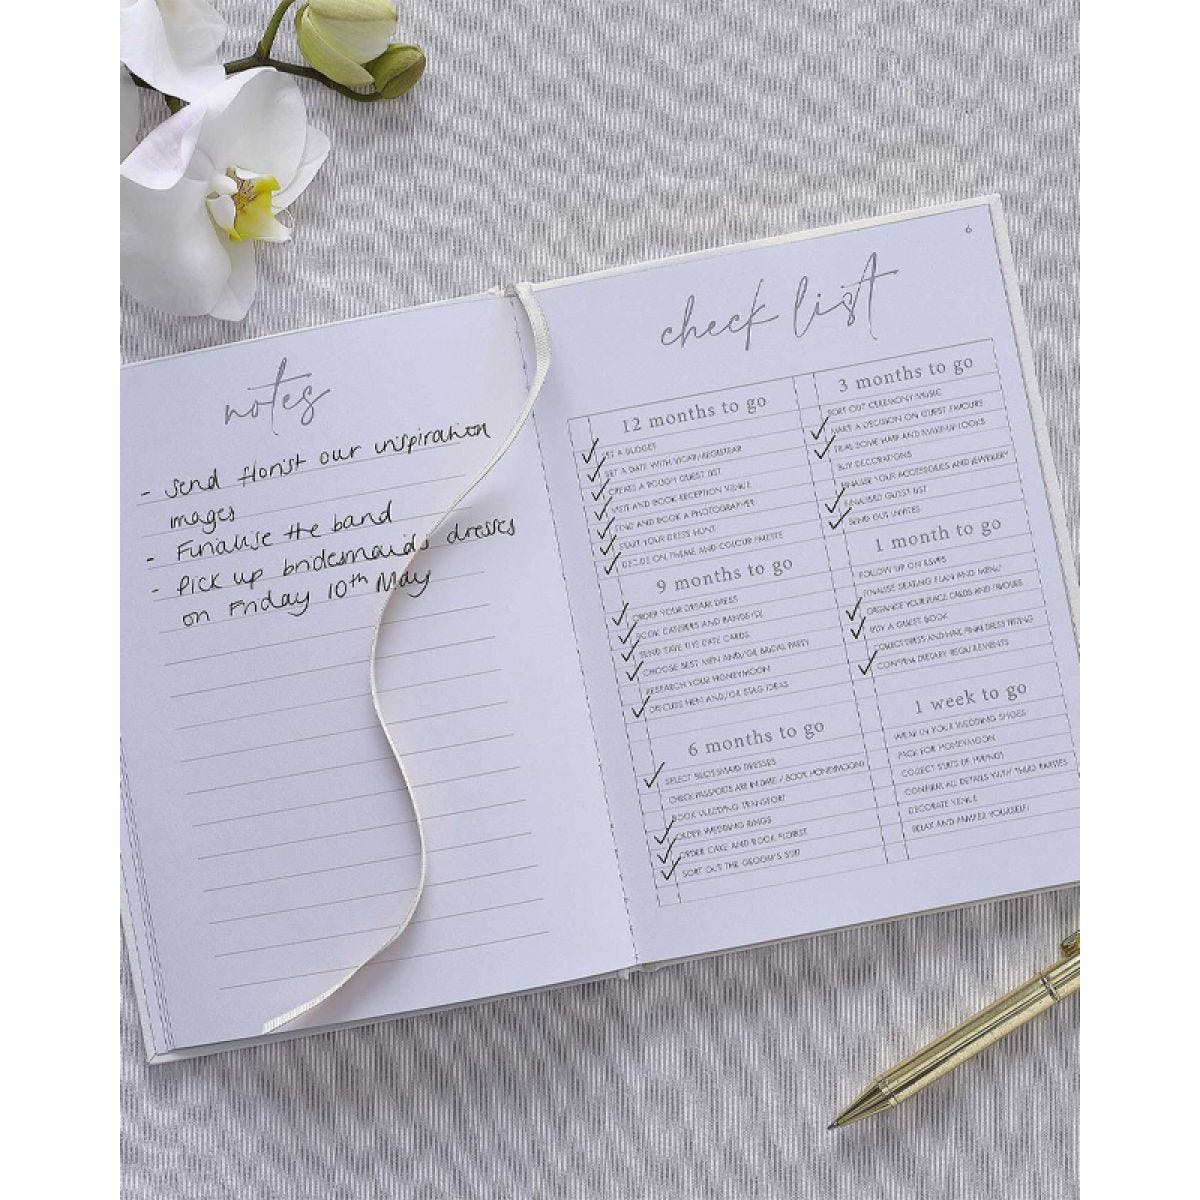 notes
- send florist our inspiration
images
- Finalise the band
- Pick up bridesmaids dresses
on Friday 10th May
6
check list
12 months to go
SET A BUDGET
SET A DATE WITH VICAR/REGISTRAR
CREATE A ROUGH GUEST LIST
VISIT AND BOOK RECEPTION VENUE
FIND AND BOOK A PHOTOGRAPHER
START YOUR DRESS HUNT
DECIDE ON THEME AND COLOUR PALETTE
9 months to go
ORDER YOUR DREAM DRESS
BOOK CATERERS AND BAND/DJ
SEND SAVE THE DATE CARDS
CHOOSE BEST MEN AND/OR BRIDAL PARTY
RESEARCH YOUR HONEYMOON
DISCUSS HEN AND/OR STAG IDEAS
6 months to go
SELECT BRIDESMAID DRESSES
CHECK PASSPORTS ARE IN DATE / BOOK HONEYMOON!
BOOK WEDDING TRANSPORT
ORDER WEDDING RINGS
ORDER CAKE AND BOOK FLORIST
SORT OUT THE GROOM'S SUIT
3 months to go
SORT OUT CEREMONY MUSIC
MAKE A DECISION ON GUEST FAVOURS
TRIAL SOME HAIR AND MAKE-UP LOOKS
BUY DECORATIONS
FINALISE YOUR ACCESSORIES AND JEWELLERY
FINALISED GUEST LIST
SEND OUT INVITES
1 month to go
FOLLOW UP ON RSVPS
FINALISE SEATING PLAN AND MENU
ORGANISE YOUR PLACE CARDS AND FAVOURS
BUY A GUEST BOOK
COLLECT DRESS AND HAVE FINAL DRESS FITTING
CONFIRM DIETARY REQUIREMENTS
1 week to go
WEAR IN YOUR WEDDING SHOES
PACK FOR HONEYMOON
COLLECT SUITS IF HIRING!
CONFIRM ALL DETAILS WITH THIRD PARTIES
DECORATE VENUE
RELAX AND PAMPER YOURSELF!